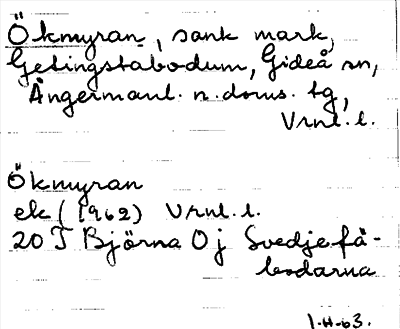 Ökmyran, sank mark,
Getingstabodum, Gideå sn,
Ångermanl. n. doms. tg,
Vrnl. l.
Ökmyran
ek (1962) Vrnl. l.
20 I Björna Oj Svedjefä-
bodarna
1-H-63.